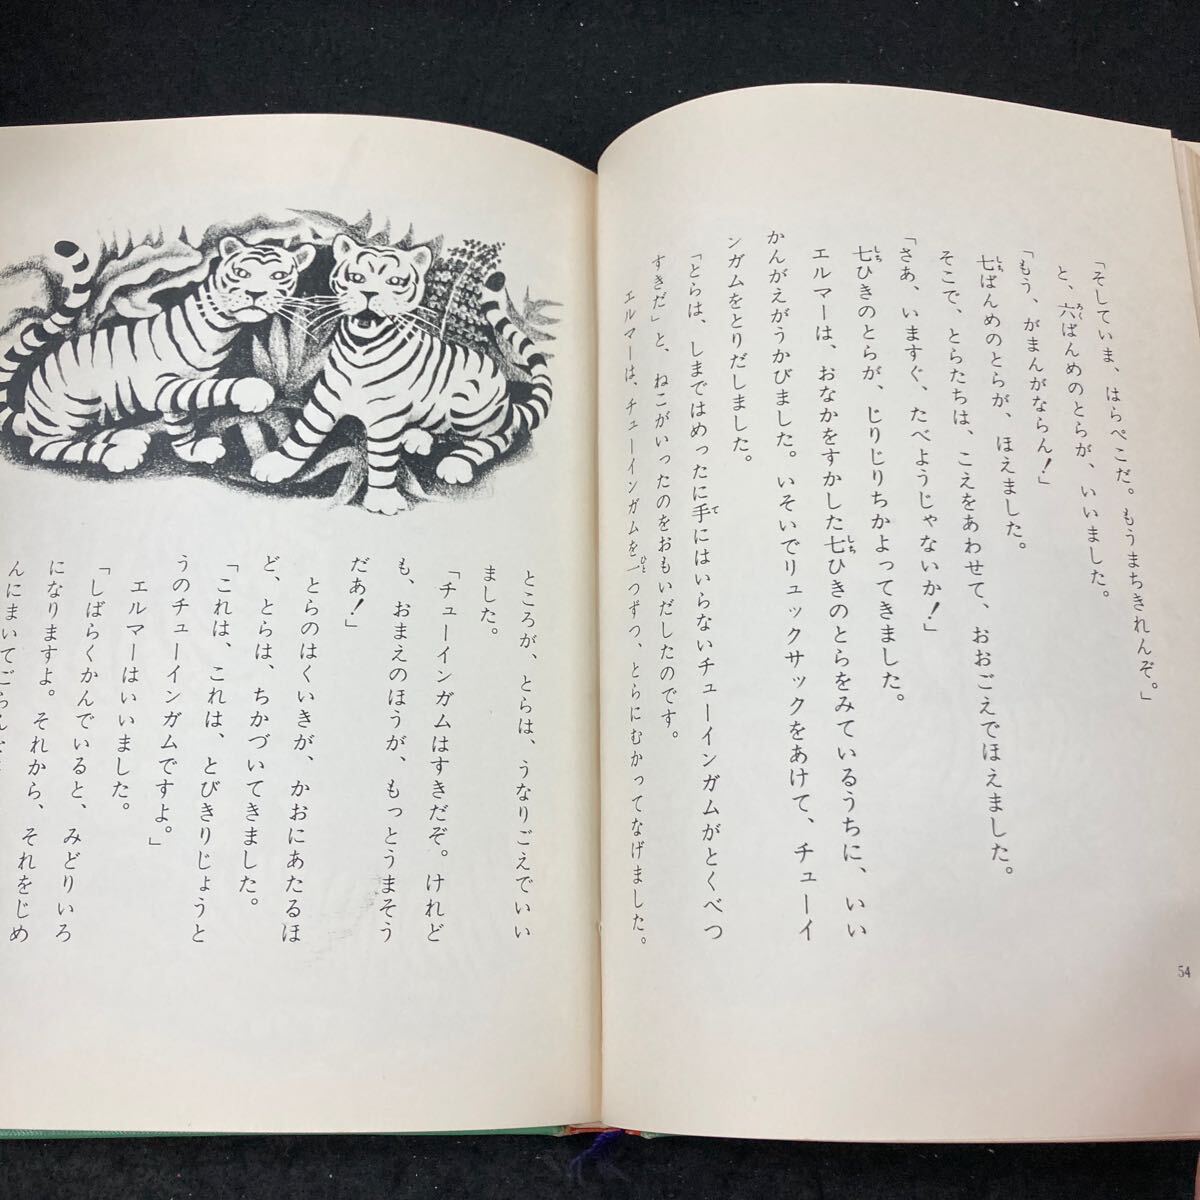 「そしていま、はらぺこだ。もうまちきれんぞ。」
と、六ばんめのとらが、いいました。
「もう、がまんがならん！」
七ばんめのとらが、ほえました。
そこで、とらたちは、こえをあわせて、おおごえでほえました。
「さあ、いますぐ、たべようじゃないか！」
七ひきのとらが、じりじりちかよってきました。
エルマーは、おなかをすかした七ひきのとらをみているうちに、いい
かんがえがうかびました。いそいでリュックサックをあけて、チューイ
ンガムをとりだしました。
「とらは、しまではめったに手にはいらないチューインガムがとくべつ
すきだ」と、ねこがいったのをおもいだしたのです。
エルマーは、チューインガムを一つずつ、とらにむかってなげました。
54
ところが、とらは、うなりごえでいい
ました。
「チューインガムはすきだぞ。けれど
も、おまえのほうが、もっとうまそう
だあ！」
とらのはくいきが、かおにあたるほ
ど、とらは、ちかづいてきました。
「これは、これは、とびきりじょうと
うのチューインガムですよ。」
エルマーはいいました。
「しばらくかんでいると、みどりいろ
になりますよ。それから、それをじめ
んにまいてごらんな